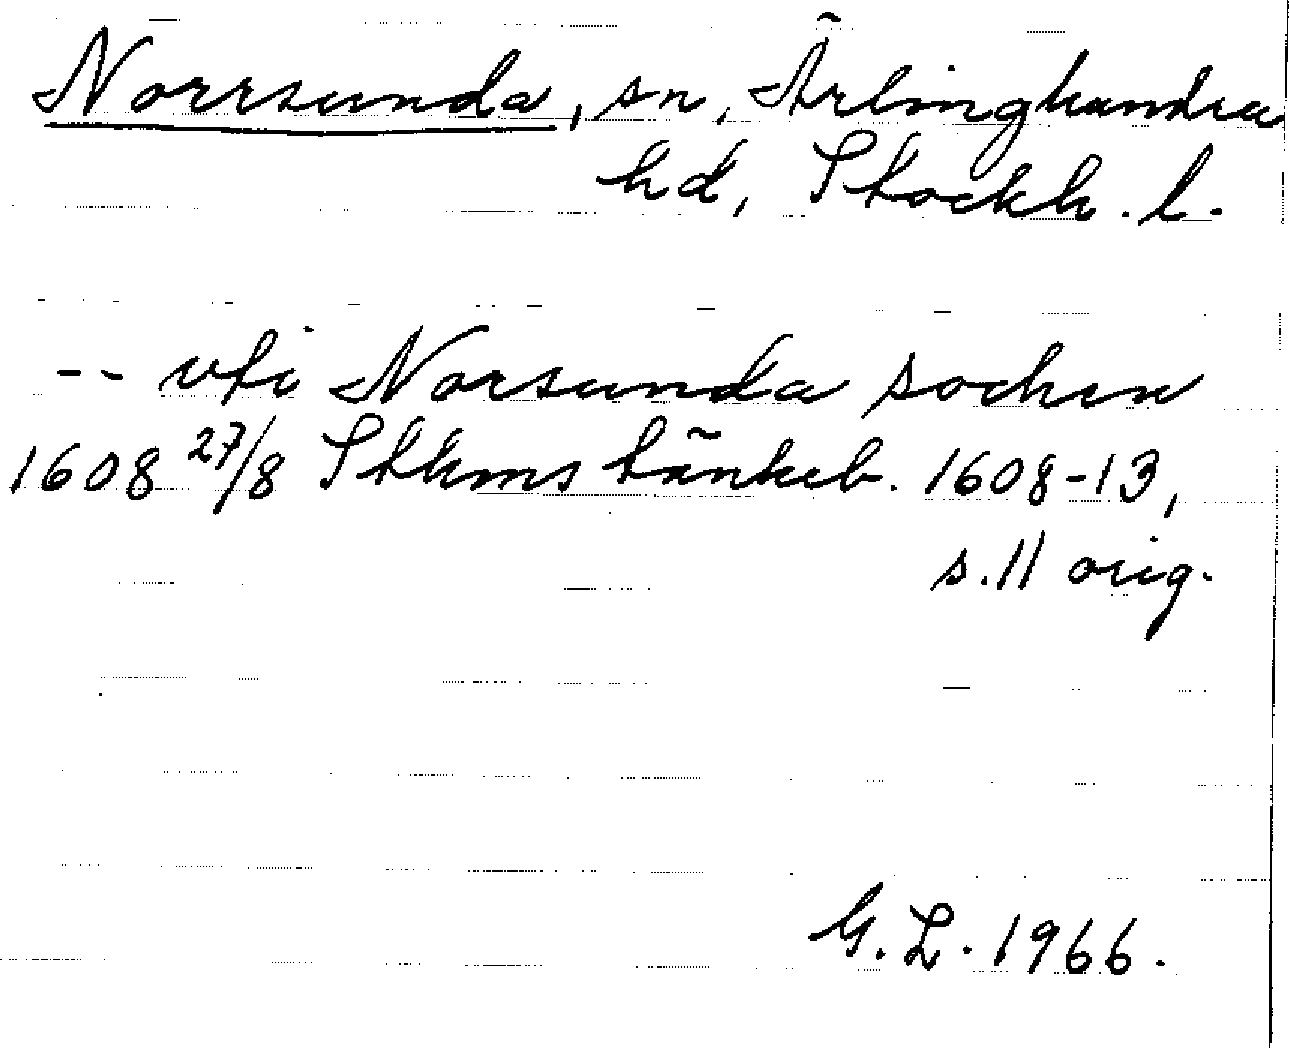 Norrsunda, sn, Ärlinghundra
hd, Stockh. l.
-- vti Norsunda sochen
1608 27/8 Sthms tänkeb. 1608-13,
s. 11 orig.
G. L. 1966.